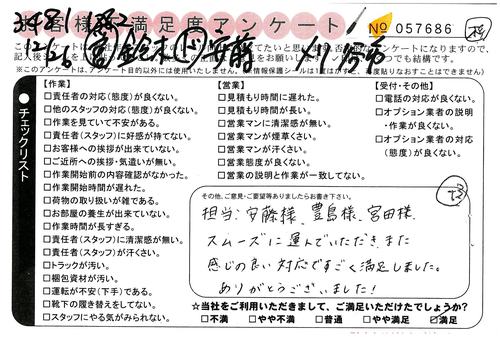 お客様満足度アンケート
No 057686
34881 1882
12/26
記入後
※このアンケートは、アンケート目的以外には使用いたしません。(情報保護シールは1度はがすと、再度貼りなおすことはできません)
チェックリスト
【作業】
□責任者の対応(態度)が良くない。
□他のスタッフの対応(態度)が良くない。
□作業を見ていて不安がある。
□責任者(スタッフ)に好感が持てない。
□お客様への挨拶が出来ていない。
□ご近所への挨拶・気遣いが無い。
□作業開始前の内容確認がなかった。
□作業開始時間が遅れた。
□荷物の取り扱いが雑である。
□お部屋の養生が出来ていない。
□作業時間が長すぎる。
□責任者(スタッフ)に清潔感が無い。
□責任者(スタッフ)が汗くさい。
□トラックが汚い。
□梱包資材が汚い。
□運転が不安(下手)である。
□靴下の履き替えをしてない。
□スタッフにやる気がみられない。
【営業】
□見積もり時間に遅れた。
□見積もり時間が長い。
□営業マンに清潔感が無い。
□営業マンが煙草くさい。
□営業マンが汗くさい。
□営業態度が良くない。
□営業の説明と作業が一致してない。
【受付・その他】
□電話の対応が良くない。
□オプション業者の説明
・作業が良くない。
□オプション業者の対応
(態度)が良くない。
その他、ご意見・ご要望等ありましたらお書き下さい。
担当:安藤様、豊島様、宮田様
スムーズに運んでいただき、また
感じの良い対応ですごく満足しました。
ありがとうございました!
☆当社をご利用いただきまして、ご満足いただけたでしょうか?
□不満 □やや不満 □普通 □やや満足 ☑満足